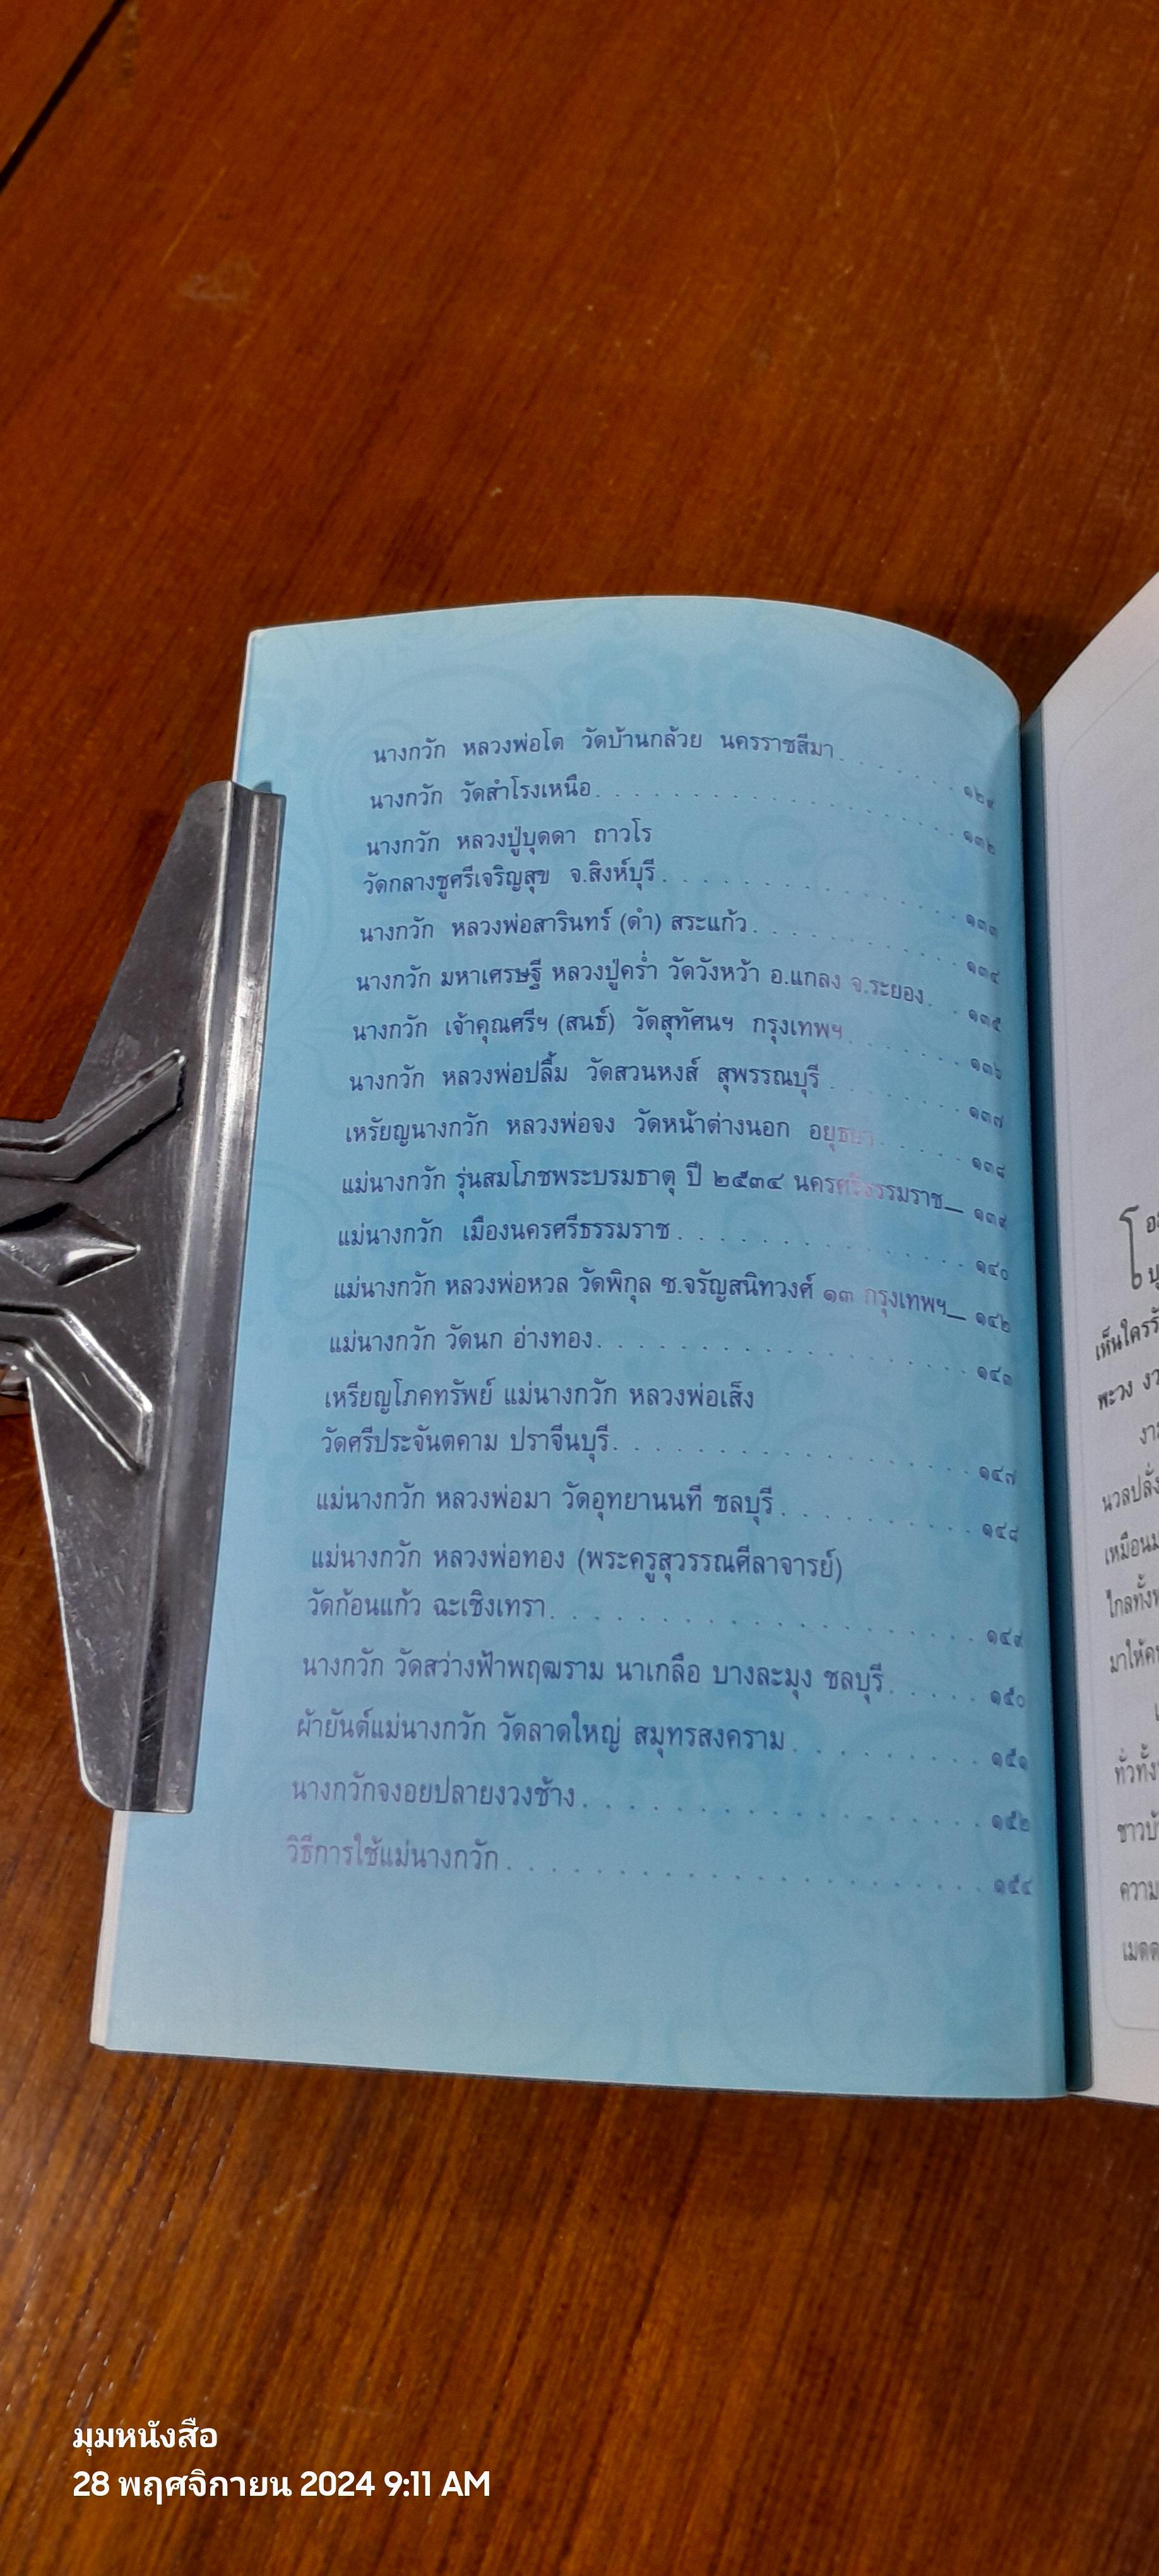 นางกวัก หลวงพ่อโต วัดบ้านกล้วย นครราชสีมา. . . . . . . ๑๒๙
นางกวัก วัดสำโรงเหนือ. . . . . . . . . . . . . . . . ๑๓๒
นางกวัก หลวงปู่บุดดา ถาวโร
วัดกลางชูศรีเจริญสุข จ.สิงห์บุรี. . . . . . . . . . . . . ๑๓๓
นางกวัก หลวงพ่อสารินทร์ (ดำ) สระแก้ว. . . . . . . . . ๑๓๔
นางกวัก มหาเศรษฐี หลวงปู่คร่ำ วัดวังหว้า อ.แกลง จ.ระยอง. . ๑๓๕
นางกวัก เจ้าคุณศรีฯ (สนธ์) วัดสุทัศนฯ กรุงเทพฯ. . . . . . ๑๓๖
นางกวัก หลวงพ่อปลื้ม วัดสวนหงส์ สุพรรณบุรี. . . . . . . ๑๓๗
เหรัยญนางกวัก หลวงพ่อจง วัดหน้าต่างนอก อยุธยา. . . . . ๑๓๘
แม่นางกวัก รุ่นสมโภชพระบรมธาตุ ปี ๒๕๓๔ นครศรีธรรมราช_ ๑๓๙
แม่นางกวัก เมืองนครศรีธรรมราช. . . . . . . . . . . . ๑๔๐
แม่นางกวัก หลวงพ่อหวล วัดพิกุล ซ.จรัญสนิทวงศ์ ๑๓ กรุงเทพฯ_ ๑๔๒
แม่นางกวัก วัดนก อ่างทอง. . . . . . . . . . . . . . . ๑๔๓
เหรียญโภคทรัพย์ แม่นางกวัก หลวงพ่อเส็ง
วัดศรีประจันตคาม ปราจีนบุรี. . . . . . . . . . . . . . ๑๔๗
แม่นางกวัก หลวงพ่อมา วัดอุทยานนที ชลบุรี. . . . . . . . ๑๔๘
แม่นางกวัก หลวงพ่อทอง (พระครูสุวรรณศีลาจารย์)
วัดก้อนแก้ว ฉะเชิงเทรา. . . . . . . . . . . . . . . . ๑๔๙
นางกวัก วัดสว่างฟ้าพฤฒราม นาเกลือ บางละมุง ชลบุรี. . . . . ๑๕๐
ผ้ายันต์แม่นางกวัก วัดลาดใหญ่ สมุทรสงคราม. . . . . . . . ๑๕๑
นางกวักจงอยปลายงวงช้าง. . . . . . . . . . . . . . . ๑๕๒
วิธีการใช้แม่นางกวัก. . . . . . . . . . . . . . . . . . ๑๕๔
เห็นใครร
พะวง
นวลปลั่ง
เหมือนม
ไกลทั้ง
มาให้ค
ทั่วทั้ง
ชาวบ้
ความ
เมตต
มุมหนังสือ
28 พฤศจิกายน 2024 9:11 AM